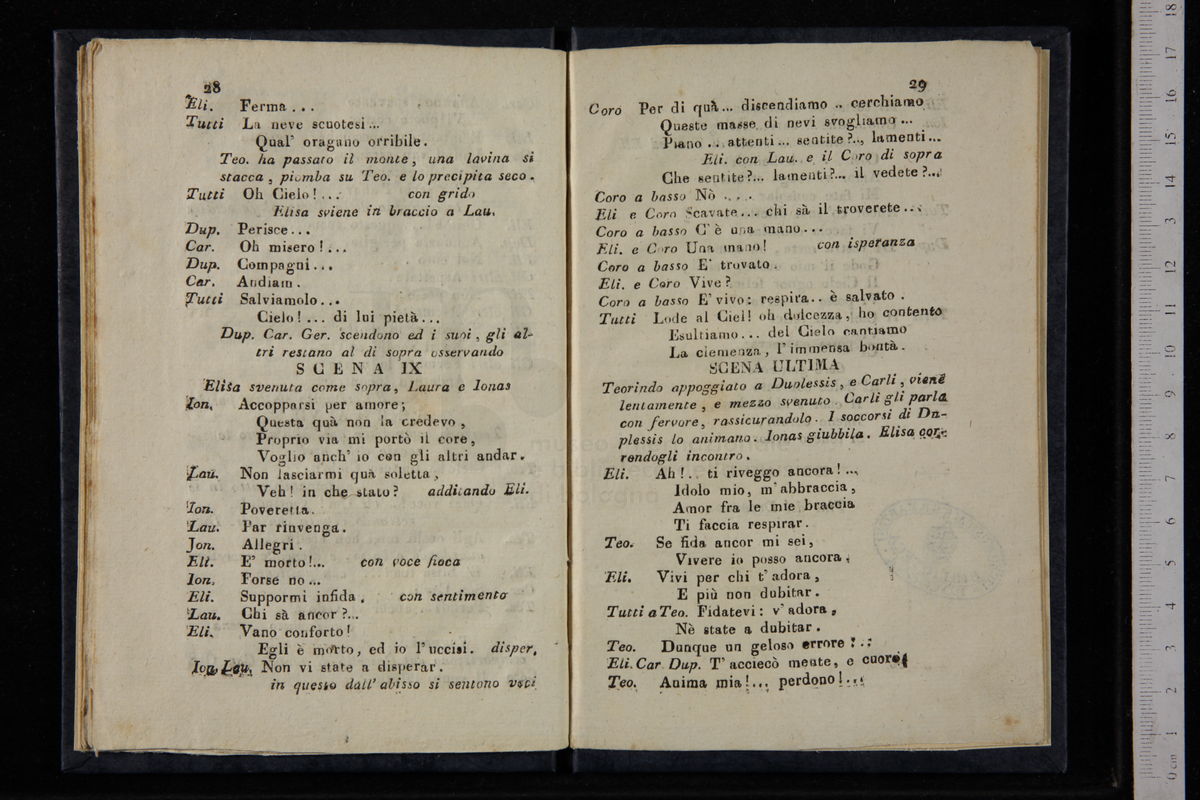 28
Eli. Ferma...
Tutti La neve scuotesi...
Qual' oragano orribile.
Teo. ha passato il monte, una lavina si
stacca, piomba su Teo. e lo precipita seco.
Tutti Oh Cielo!... con grido
Elisa sviene in braccio a Lau.
Dup. Perisce...
Car. Oh misero!...
Dup. Compagni...
Car. Andiam.
Tutti Salviamolo...
Cielo!... di lui pietà...
Dup. Car. Ger. scendono ed i suoi, gli al-
tri restano al di sopra osservando
SCENA IX
Elisa svenuta come sopra, Laura e Ionas
Ion. Accopparsi per amore;
Questa quà non la credevo,
Proprio via mi portò il core,
Voglio anch' io con gli altri andar.
Lau. Non lasciarmi quà soletta,
Veh! in che stato? additando Eli.
Ion. Poveretta.
Lau. Par rinvenga.
Jon. Allegri.
Eli. E' morto!... con voce fioca
Ion. Forse no...
Eli. Suppormi infida. con sentimento
Lau. Chi sà ancor?...
Eli. Vano conforto!
Egli è morto, ed io l'uccisi. disper.
Ion. Lau. Non vi state a disperar.
in questo dall' abisso si sentono voci
29
Coro Per di quà... discendiamo .. cerchiamo
Queste masse di nevi svogliamo...
Piano .. attenti... sentite?.., lamenti...
Eli. con Lau. e il Coro di sopra
Che sentite?... lamenti?... il vedete?...
Coro a basso Nò ....
Eli e Coro Scavate... chi sà il troverete...
Coro a basso C'è una mano...
Eli. e Coro Una mano! con isperanza
Coro a basso E' trovato.
Eli. e Coro Vive?
Coro a basso E' vivo: respira.. è salvato.
Tutti Lode al Ciel! oh dolcezza, ho contento
Esultiamo... del Cielo cantiamo
La clemenza, l'immensa bontà.
SCENA ULTIMA
Teorindo appoggiato a Duplessis, e Carli, viene
lentamente, e mezzo svenuto. Carli gli parla
con fervore, rassicurandolo. I soccorsi di Du-
plessis lo animano. Ionas giubbila. Elisa cor-
rendogli incontro.
Eli. Ah!.. ti riveggo ancora!...
Idolo mio, m'abbraccia,
Amor fra le mie braccia
Ti faccia respirar.
Teo. Se fida ancor mi sei,
Vivere io posso ancora.
Eli. Vivi per chi t'adora,
E più non dubitar.
Tutti a Teo. Fidatevi: v'adora,
Nè state a dubitar.
Teo. Dunque un geloso errore...
Eli. Car. Dup. T'acciecò mente, e cuore
Teo. Anima mia!... perdono!...